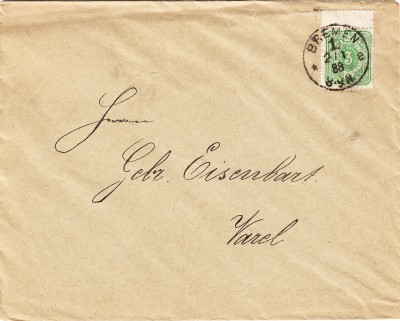 BREMEN
1.
88
3
Herren
Gebr. Eisenbart.
Varel